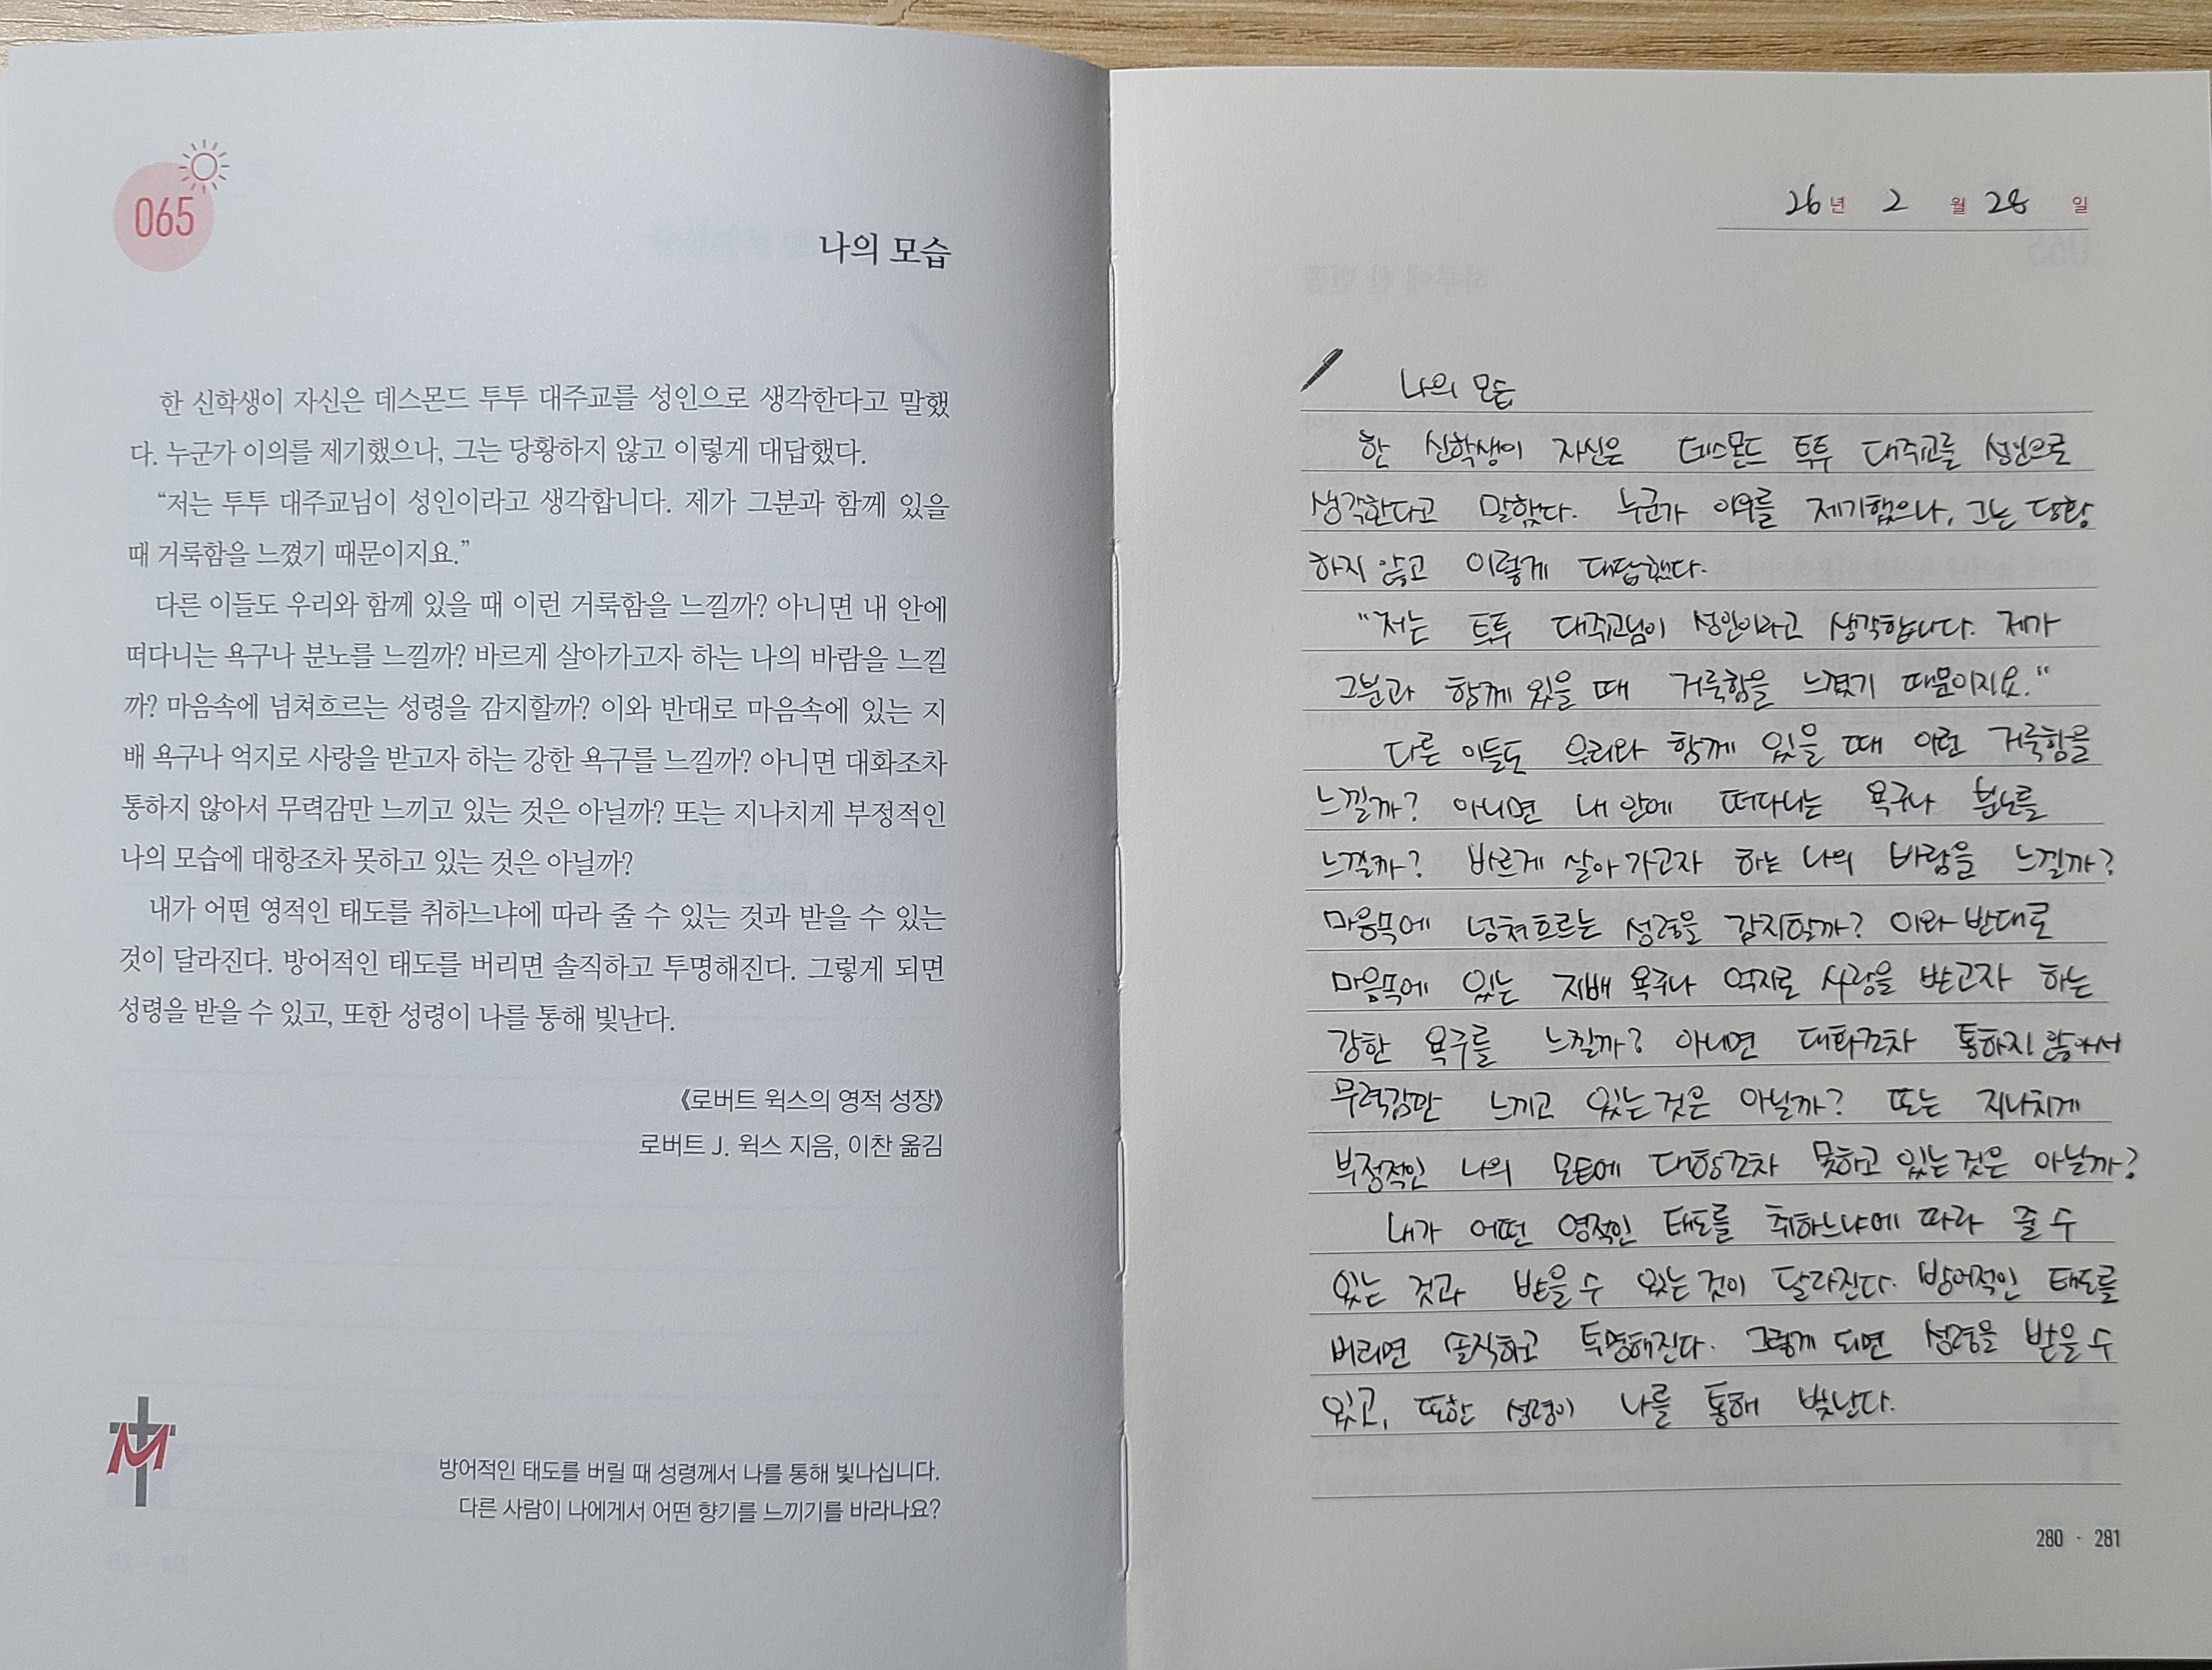 065
나의 모습
한 신학생이 자신은 데스몬드 투투 대주교를 성인으로 생각한다고 말했
다. 누군가 이의를 제기했으나, 그는 당황하지 않고 이렇게 대답했다.
“저는 투투 대주교님이 성인이라고 생각합니다. 제가 그분과 함께 있을
때 거룩함을 느꼈기 때문이지요.”
다른 이들도 우리와 함께 있을 때 이런 거룩함을 느낄까? 아니면 내 안에
떠다니는 욕구나 분노를 느낄까? 바르게 살아가고자 하는 나의 바람을 느낄
까? 마음속에 넘쳐흐르는 성령을 감지할까? 이와 반대로 마음속에 있는 지
배 욕구나 억지로 사랑을 받고자 하는 강한 욕구를 느낄까? 아니면 대화조차
통하지 않아서 무력감만 느끼고 있는 것은 아닐까? 또는 지나치게 부정적인
나의 모습에 대항조차 못하고 있는 것은 아닐까?
내가 어떤 영적인 태도를 취하느냐에 따라 줄 수 있는 것과 받을 수 있는
것이 달라진다. 방어적인 태도를 버리면 솔직하고 투명해진다. 그렇게 되면
성령을 받을 수 있고, 또한 성령이 나를 통해 빛난다.
《로버트 윅스의 영적 성장》
로버트 J. 윅스 지음, 이찬 옮김
M
방어적인 태도를 버릴 때 성령께서 나를 통해 빛나십니다.
다른 사람이 나에게서 어떤 향기를 느끼기를 바라나요?
26년 2월 28일
나의 모습
한 신학생이 자신은 데스몬드 투투 대주교를 성인으로
생각한다고 말했다. 누군가 이의를 제기했으나, 그는 당황
하지 않고 이렇게 대답했다.
“저는 투투 대주교님이 성인이라고 생각합니다. 제가
그분과 함께 있을 때 거룩함을 느꼈기 때문이지요.“
다른 이들도 우리와 함께 있을 때 이런 거룩함을
느낄까? 아니면 내 안에 떠다니는 욕구나 분노를
느낄까? 바르게 살아가고자 하는 나의 바람을 느낄까?
마음속에 넘쳐흐르는 성령을 감지할까? 이와 반대로
마음속에 있는 지배 욕구나 억지로 사랑을 받고자 하는
강한 욕구를 느낄까? 아니면 대화조차 통하지 않아서
무력감만 느끼고 있는 것은 아닐까? 또는 지나치게
부정적인 나의 모습에 대항조차 못하고 있는 것은 아닐까?
내가 어떤 영적인 태도를 취하느냐에 따라 줄 수
있는 것과 받을 수 있는 것이 달라진다. 방어적인 태도를
버리면 솔직하고 투명해진다. 그렇게 되면 성령을 받을 수
있고, 또한 성령이 나를 통해 빛난다.
280 · 281